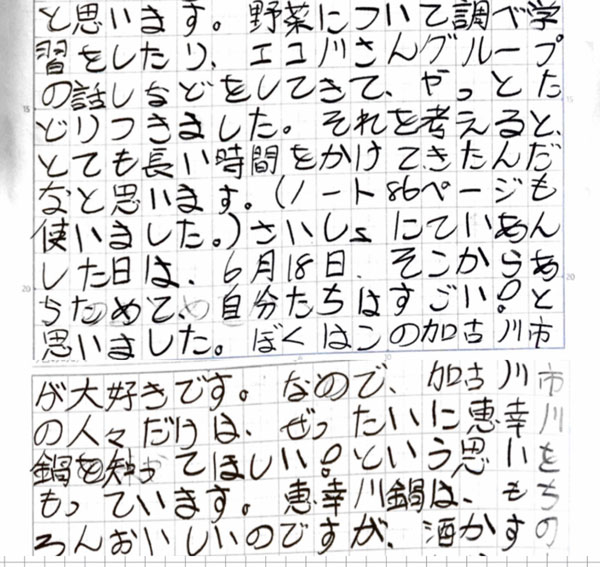 と思います。野菜について調べ学
習をしたり、エコ川さんグループ
の話しなどをしてきて、やっとた
どりつきました。それを考えると、
とても長い時間をかけてきたんだ
なと思います。(ノート86ページも
使いました。)さいしょにていあん
した日は、6月18日、そこからあ
らためて、自分たちはすごい!と
思いました。ぼくはこの加古川市
が大好きです。なので、加古川市
の人々だけは、ぜったいに恵幸川
鍋を知ってほしい!という思いを
もっています。恵幸川鍋は、もち
ろんおいしいのですが、酒かすの